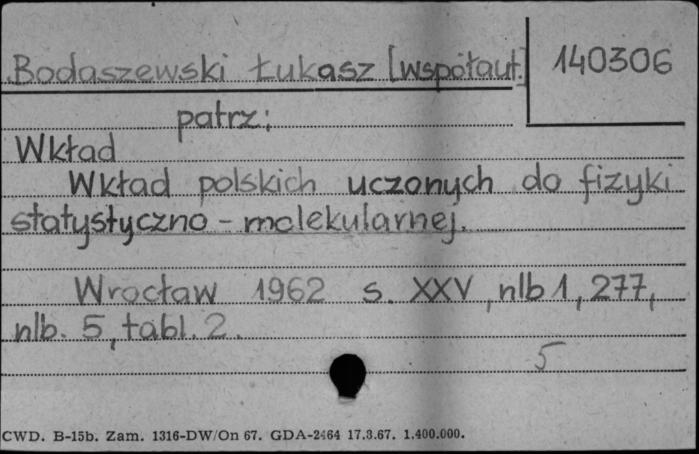 Bodaszewski Łukasz [współaut.]
140306
patrz:
Wkład
Wkład polskich uczonych do fizyki
statystyczno - molekularnej.
Wrocław 1962 s. XXV, nlb 1, 277,
nlb. 5, tabl. 2.
5
CWD. B-15b. Zam. 1316-DW/On 67. GDA-2464 17.3.67. 1.400.000.